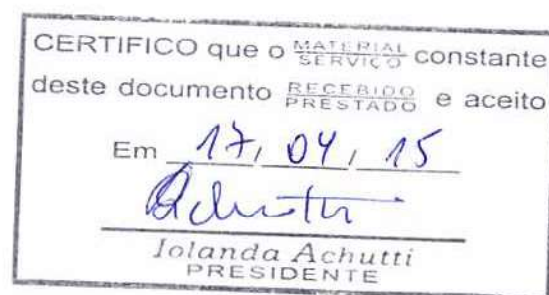 CERTIFICO que o MATERIAL SERVIÇO constante
deste documento RECEBIDO PRESTADO e aceito
Em 17, 04, 15
Achutti
Iolanda Achutti
PRESIDENTE